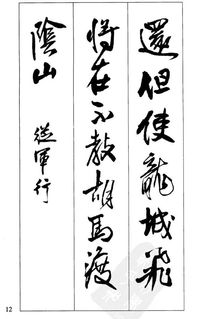 還但使龍城飛
將在不教胡馬渡
陰山 從軍行
12